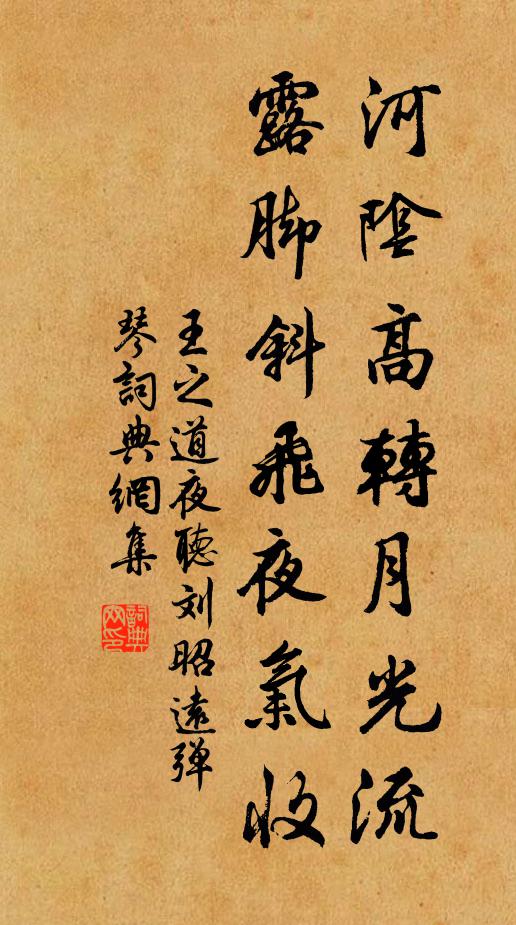 河陰高轉月光流
露脚斜飛夜氣收
王之道夜聽刘昭遠弹
琴詞典網集
詞典網印